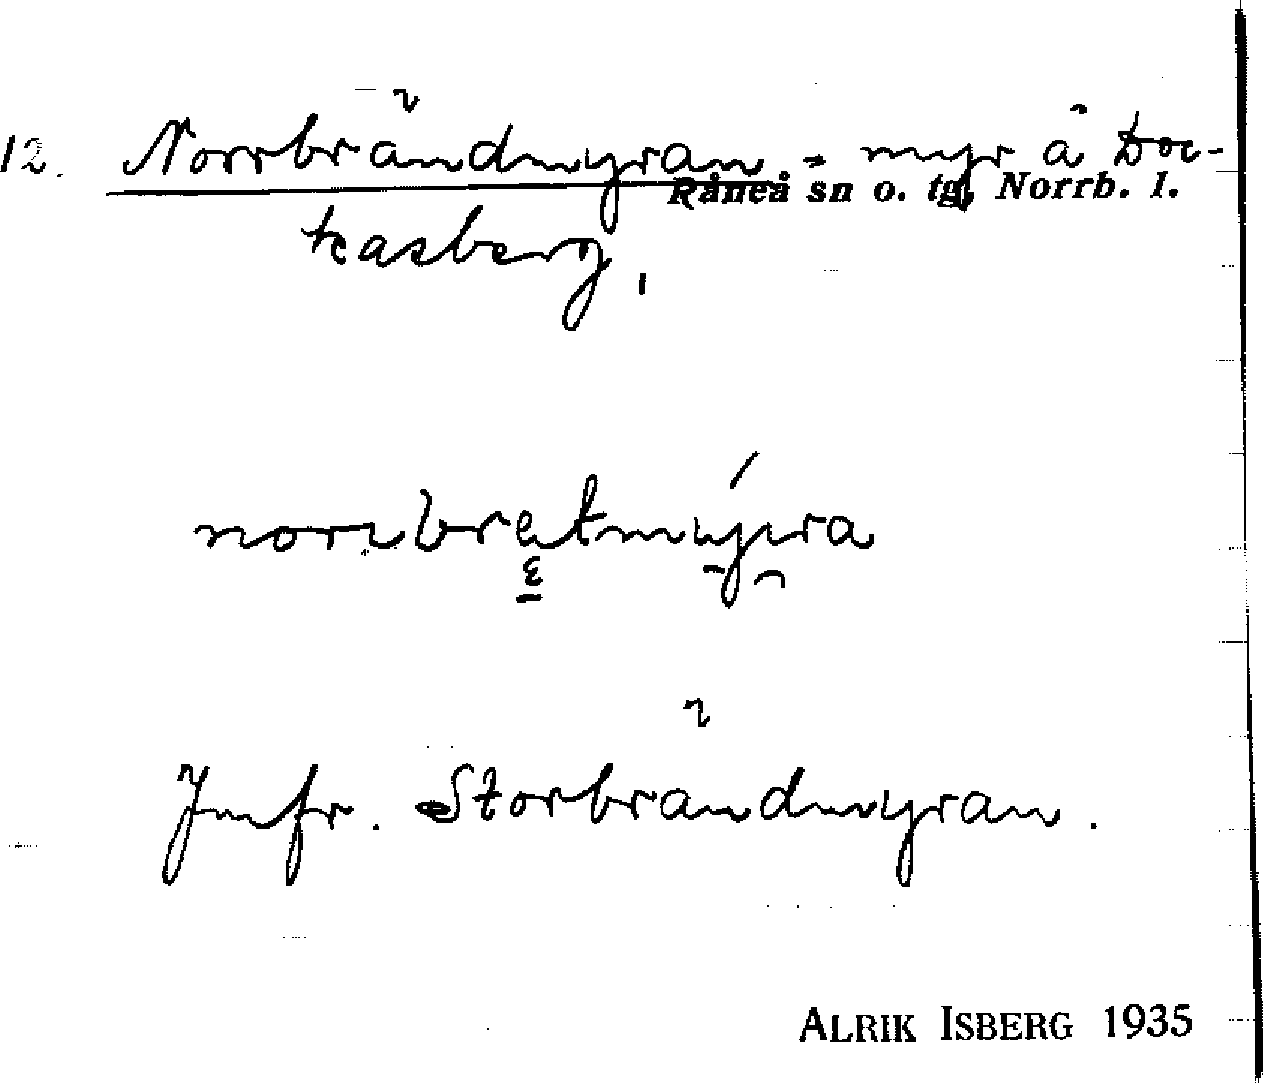 12. Norrbrändmyran = myr å Doc-
Råneå sn o. tg, Norrb. l.
kasberg,
Jmfr. Storbrändmyran.
ALRIK ISBERG 1935